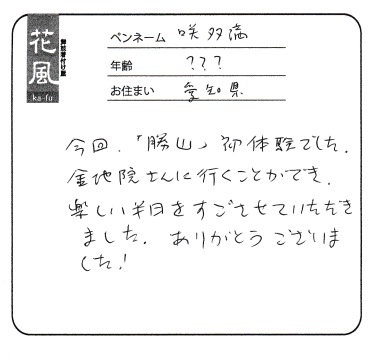 舞妓着付け屋
花風
ka-fu
ペンネーム 咲多満
年齢 ???
お住まい 愛知県
今回、「勝山」初体験でした。
金地院さんに行くことができ、
楽しい半日をすごさせていただき
ました。ありがとうございま
した!